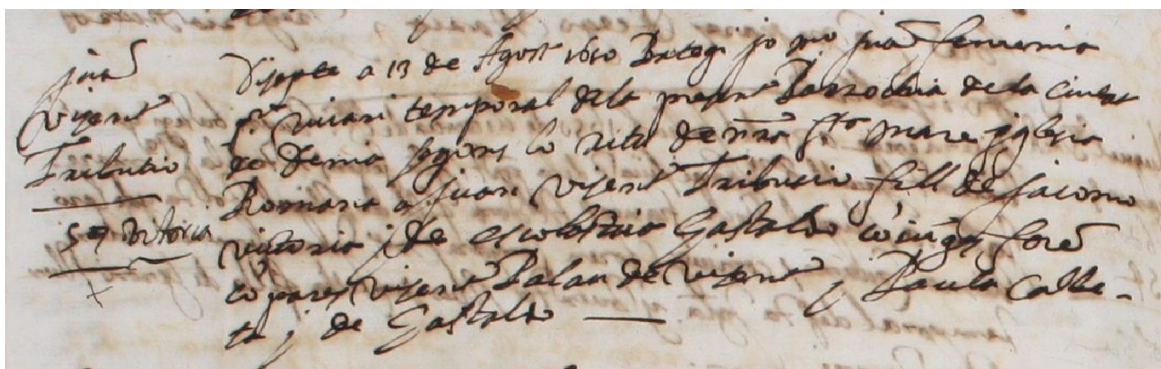 juā
Visent
Tributio
57 Victoria
Disapte a 13 de Agost 1610 Bategi jo mo juā femenia
pre vicari temporal dela present Parrochia de la ciutat
de Denia segons lo ritu de nr̄a sta mare yglesia
Romana a juan Visent Tribucio fill de Jacomo
victoria y de escolastica Gastaldo coniuges foren
cōpares Visent Palau de Visent y Paula Calle-
ta y de Gastaldo